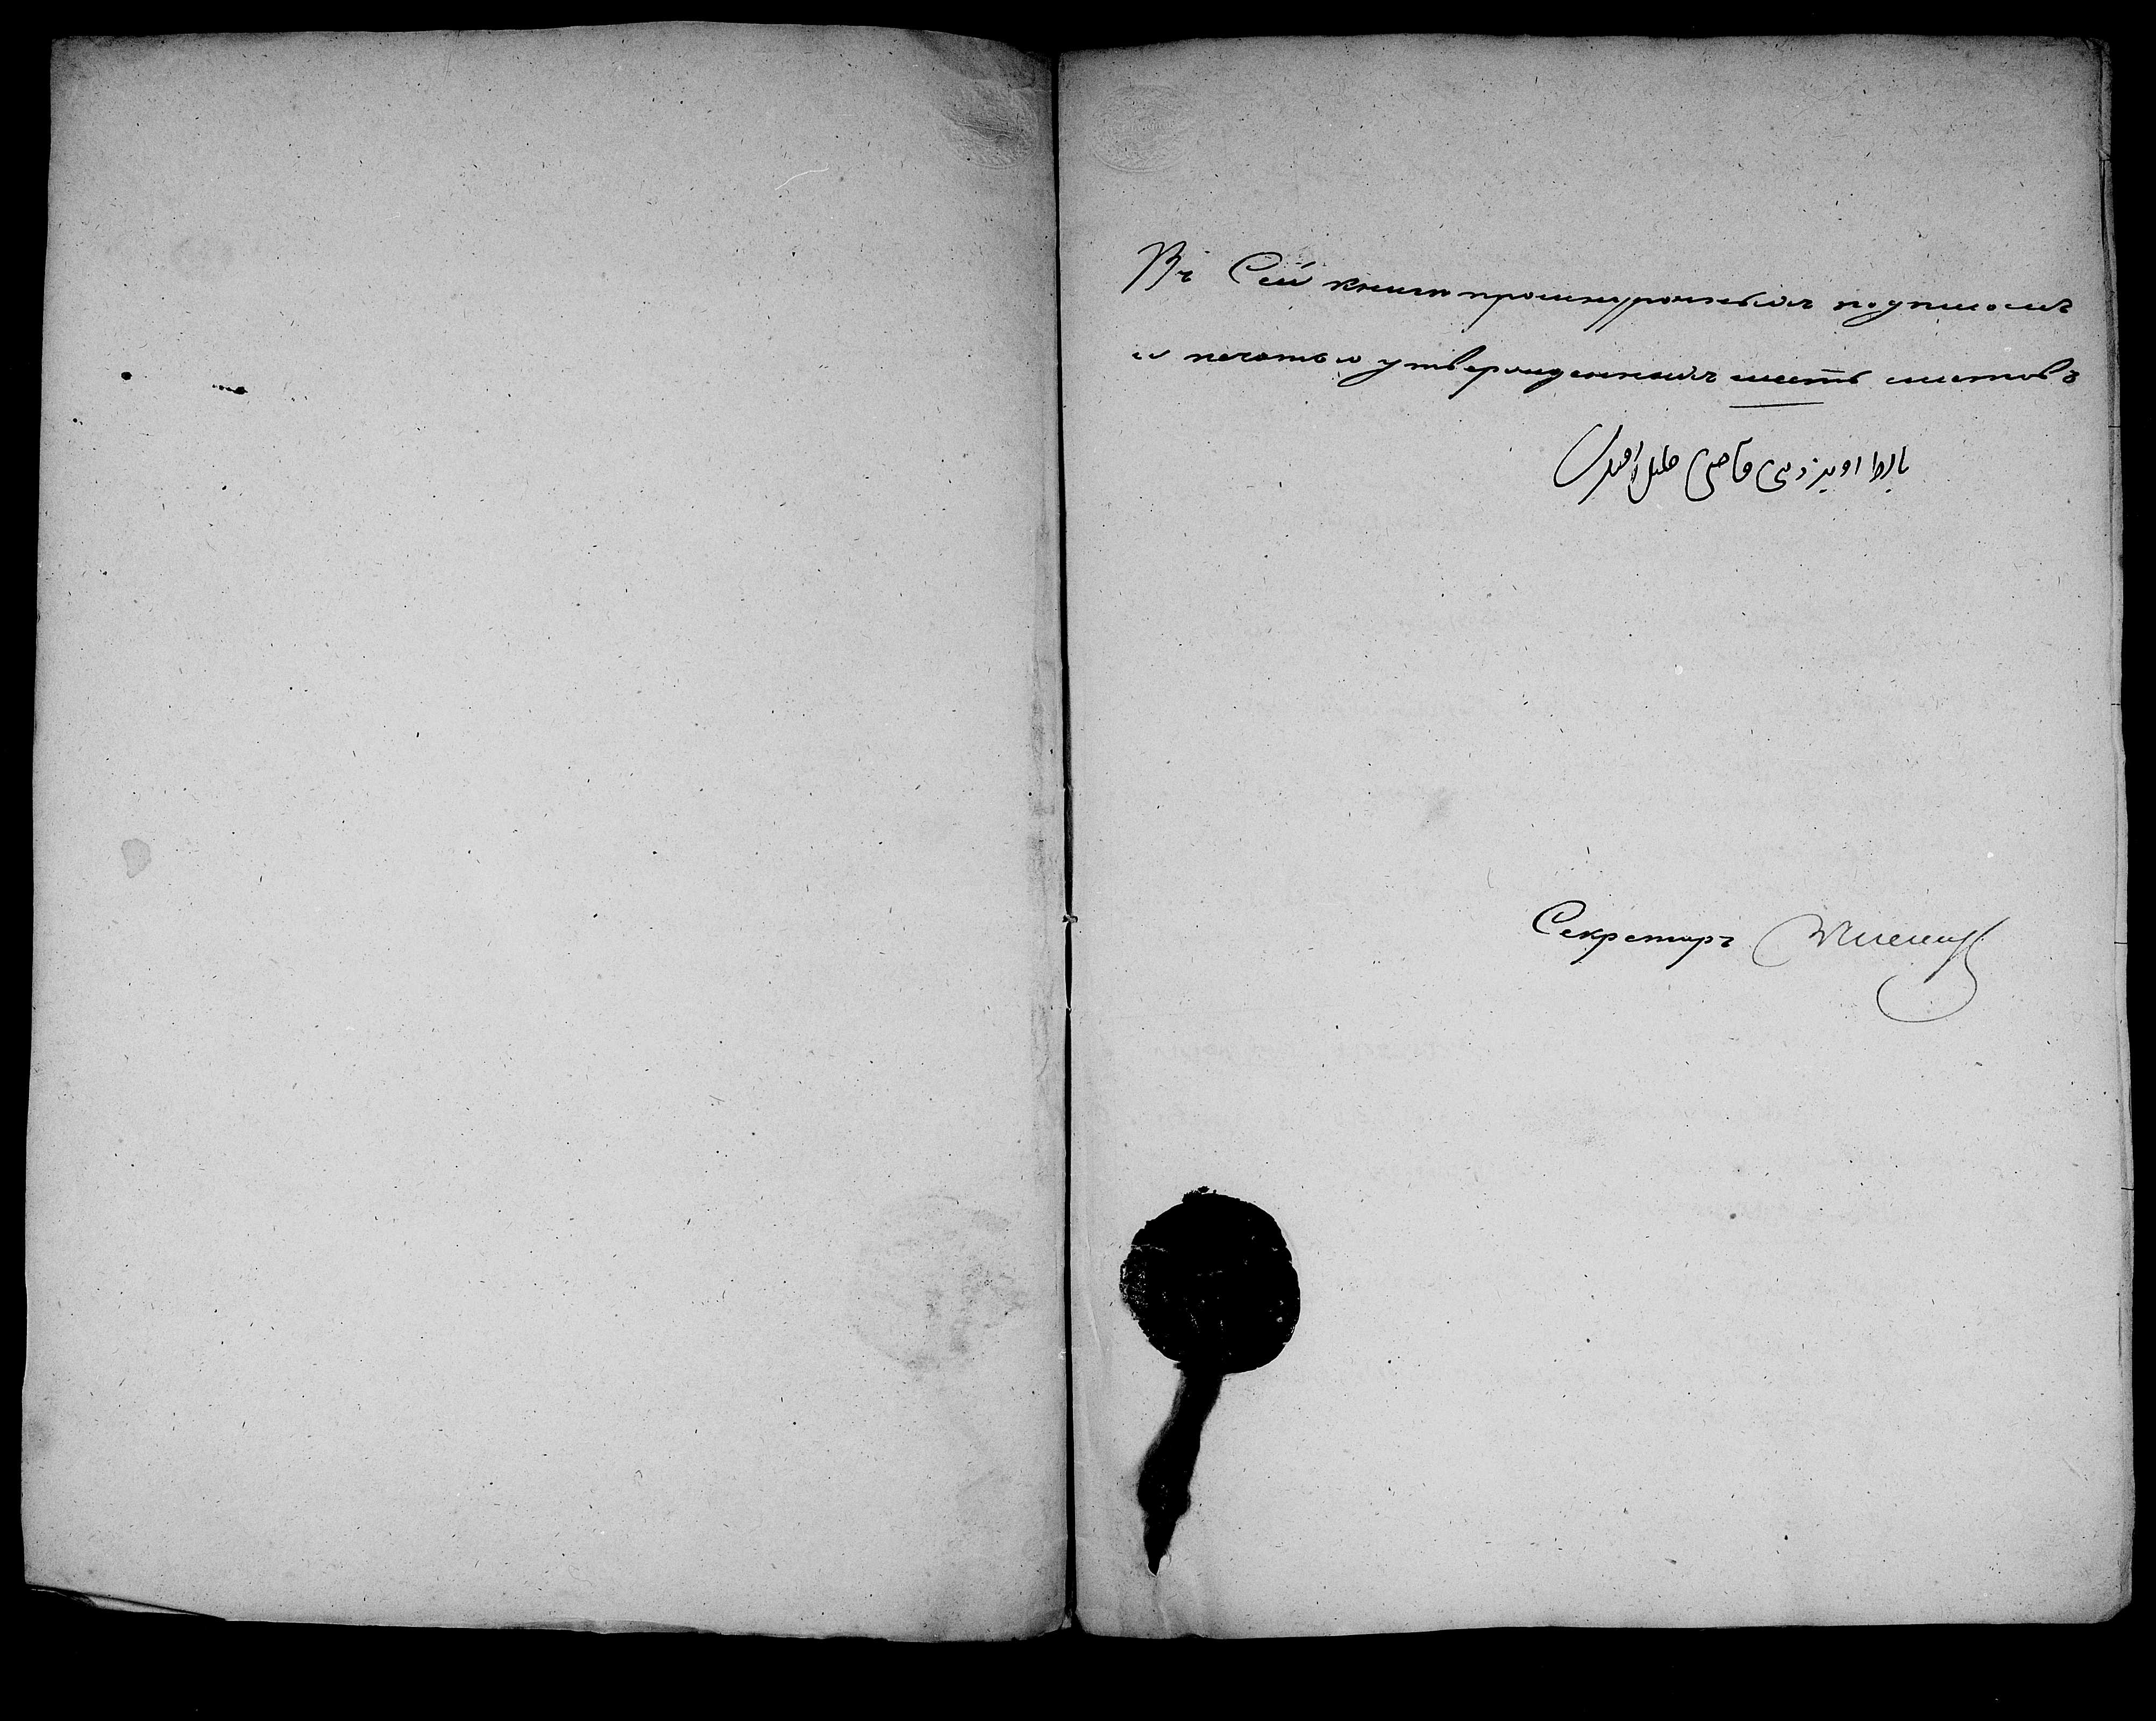 Въ Сей книгѣ прошнурованныхъ подписомъ
и печатью утвержденныхъ шесть листовъ
قاضى خليل افندى
Секретарь